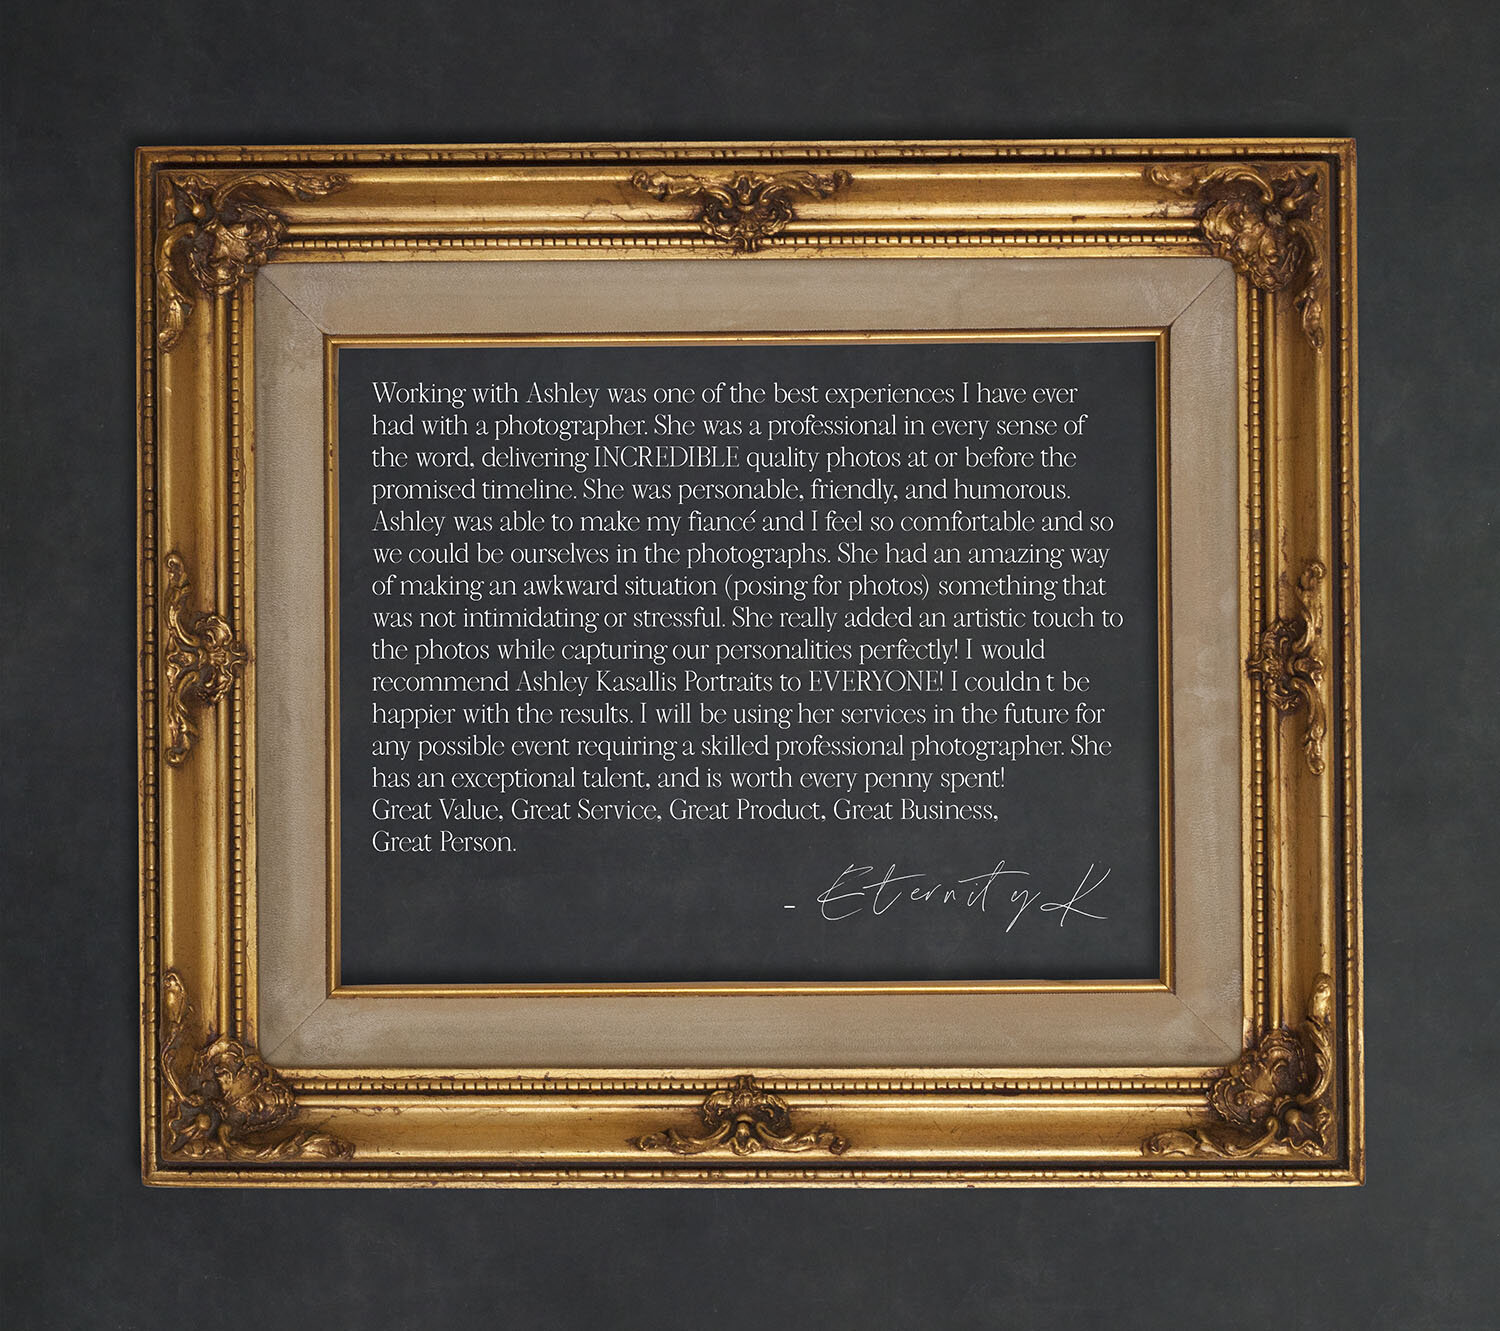 Working with Ashley was one of the best experiences I have ever
had with a photographer. She was a professional in every sense of
the word, delivering INCREDIBLE quality photos at or before the
promised timeline. She was personable, friendly, and humorous.
Ashley was able to make my fiancé and I feel so comfortable and so
we could be ourselves in the photographs. She had an amazing way
of making an awkward situation (posing for photos) something that
was not intimidating or stressful. She really added an artistic touch to
the photos while capturing our personalities perfectly! I would
recommend Ashley Kasallis Portraits to EVERYONE! I couldn t be
happier with the results. I will be using her services in the future for
any possible event requiring a skilled professional photographer. She
has an exceptional talent, and is worth every penny spent!
Great Value, Great Service, Great Product, Great Business,
Great Person.
- Eternity K